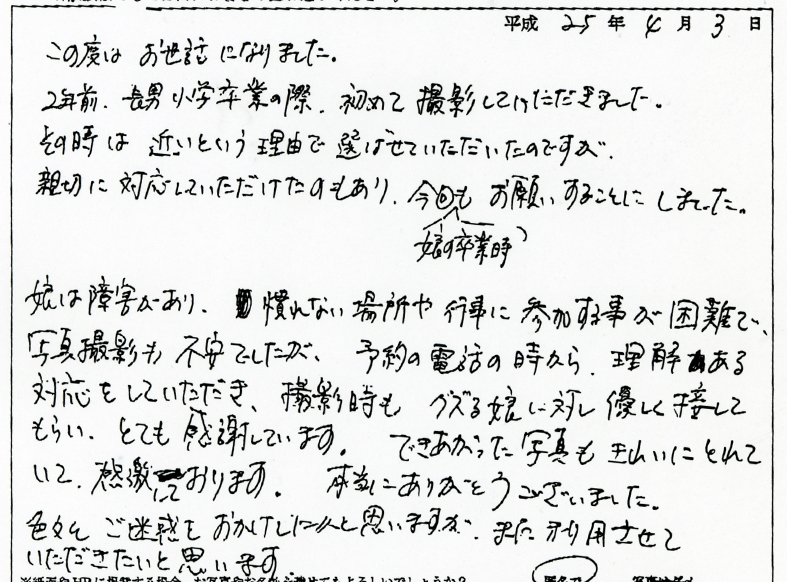 平成 25 年 4 月 3 日
この度は お世話になりました。
2年前、長男小学卒業の際、初めて撮影していただきました。
その時は 近いという理由で選ばせていただいたのですが、
親切に対応していただけたのもあり、今回も お願いすることにしました。
娘の卒業時
娘は障害があり、慣れない場所や行事に参加する事が困難で、
写真撮影も不安でしたが、予約の電話の時から、理解ある
対応をしていただき、撮影時も グズる娘に対し優しく接して
もらい、とても感謝しています。 できあがった写真もきれいにとれて
いて、感激しております。 本当にありがとうございました。
色々と ご迷惑を おかけしたと思いますが、また利用させて
いただきたいと思います。